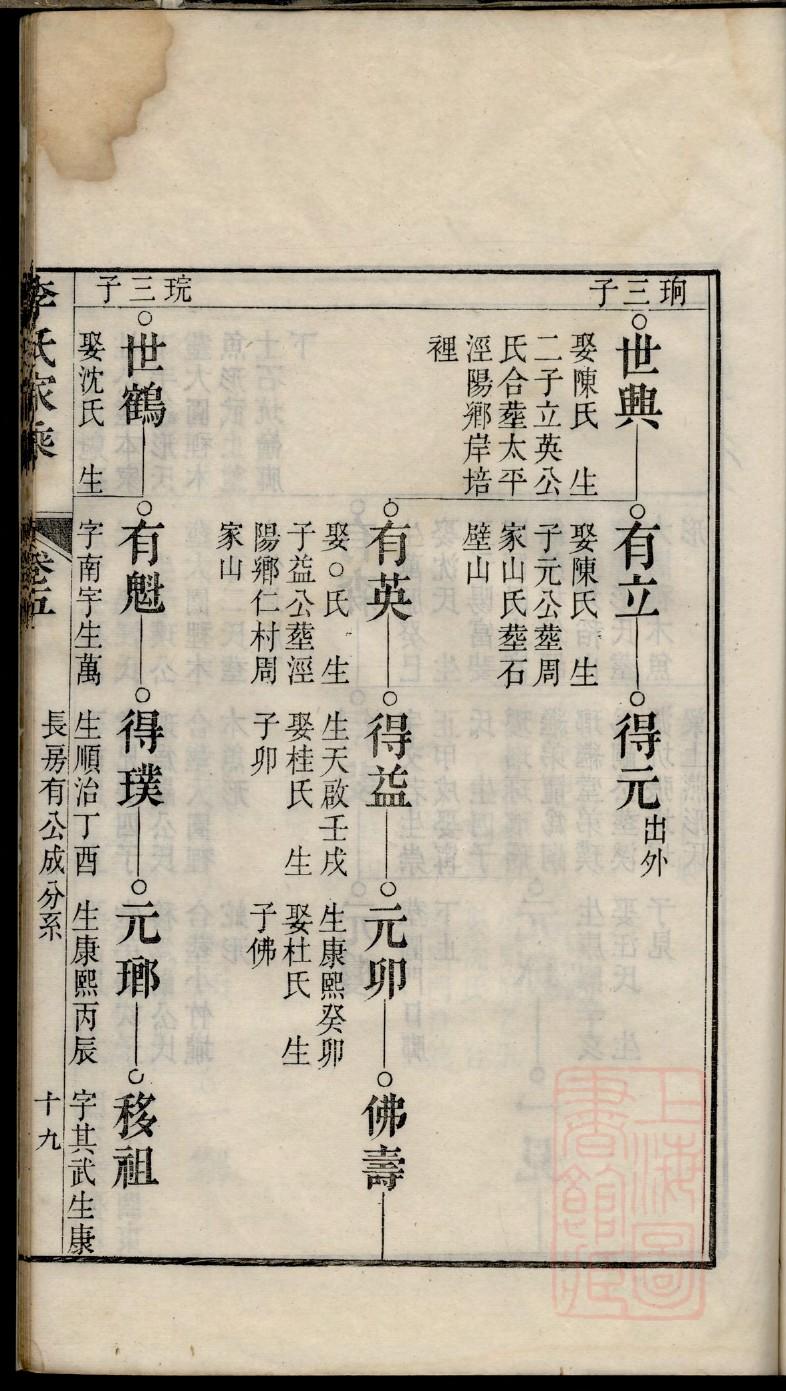 珦三子
世興
娶陳氏 生
二子立英公
氏合塟太平
涇陽鄉岸培
裡
有立
娶陳氏 生
子元公塟周
家山氏塟石
壁山
得元出外
有英
娶○氏 生
子益公塟涇
陽鄉仁村周
家山
得益
生天啟壬戌
娶桂氏 生
子卯
元卯
生康熙癸卯
娶杜氏 生
子佛
佛壽
琓三子
世鶴
娶沈氏 生
有魁
字南宇生萬
得璞
生順治丁酉
元瑯
生康熙丙辰
移祖
字其武生康
李氏家乘
卷五
長房有公成分系
十九
上海圖書館藏